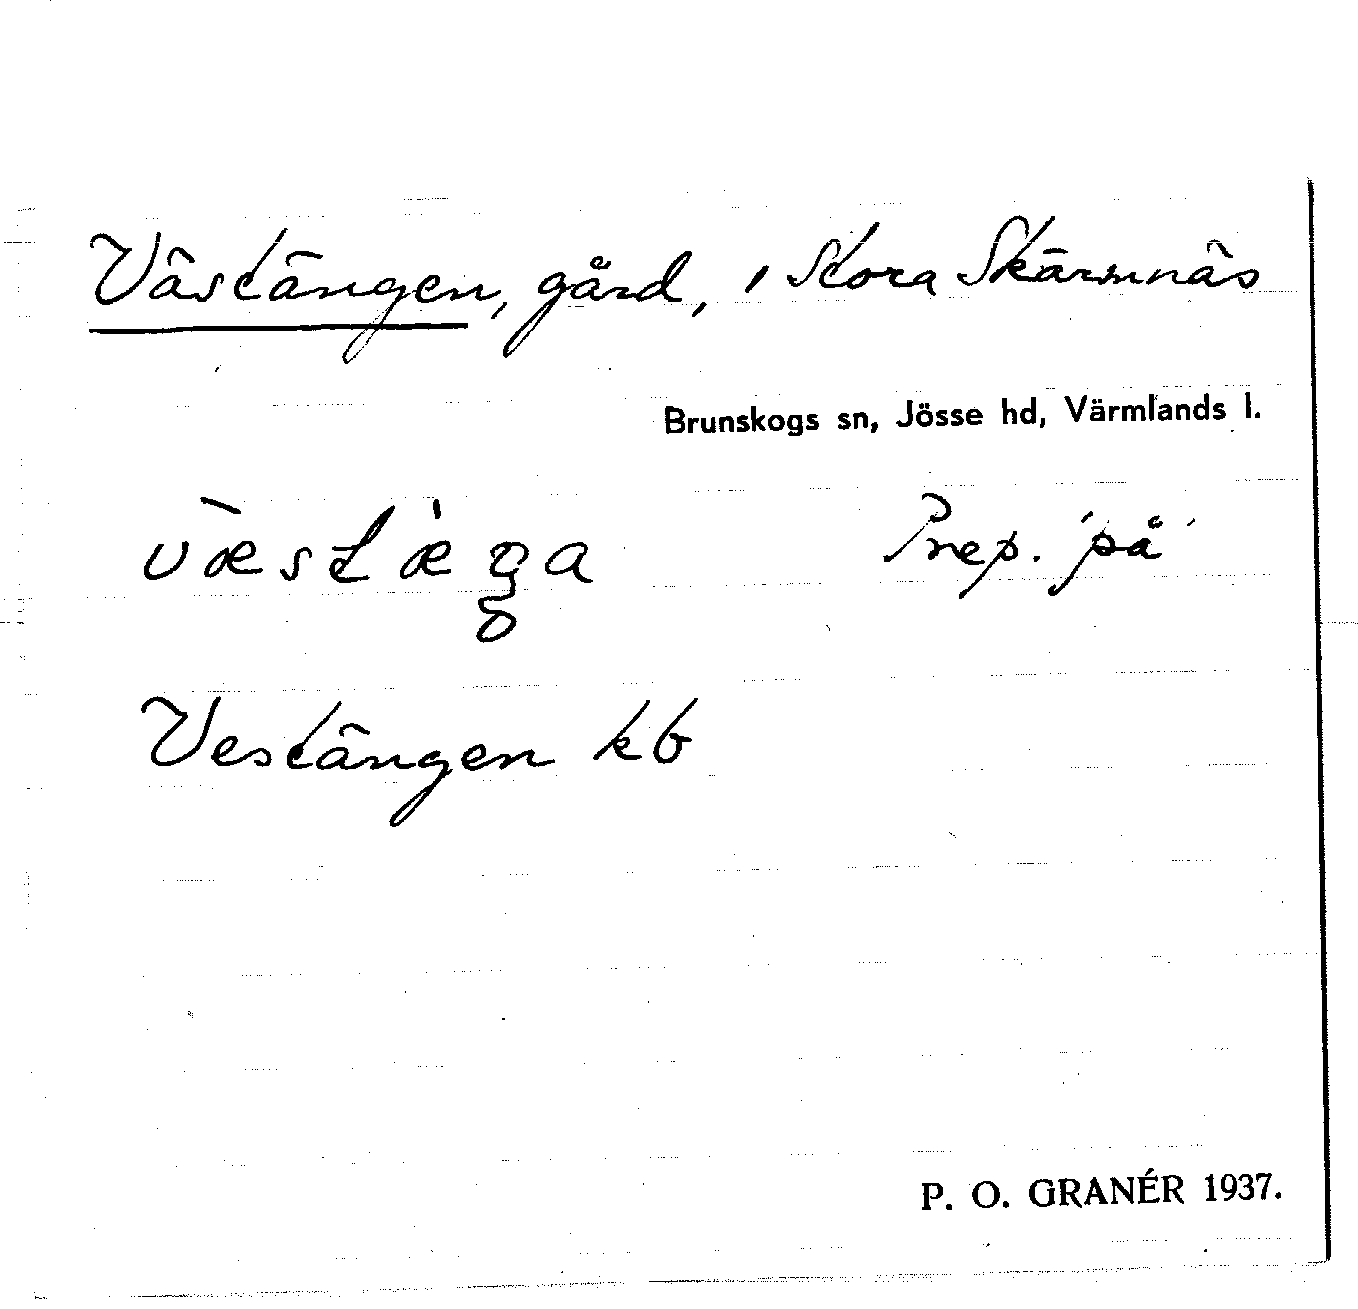 Västängen, gård, i Stora Skärmnäs
Brunskogs sn, Jösse hd, Värmlands l.
Prep. 'på'
Vestängen kb
P. O. GRANÉR 1937.